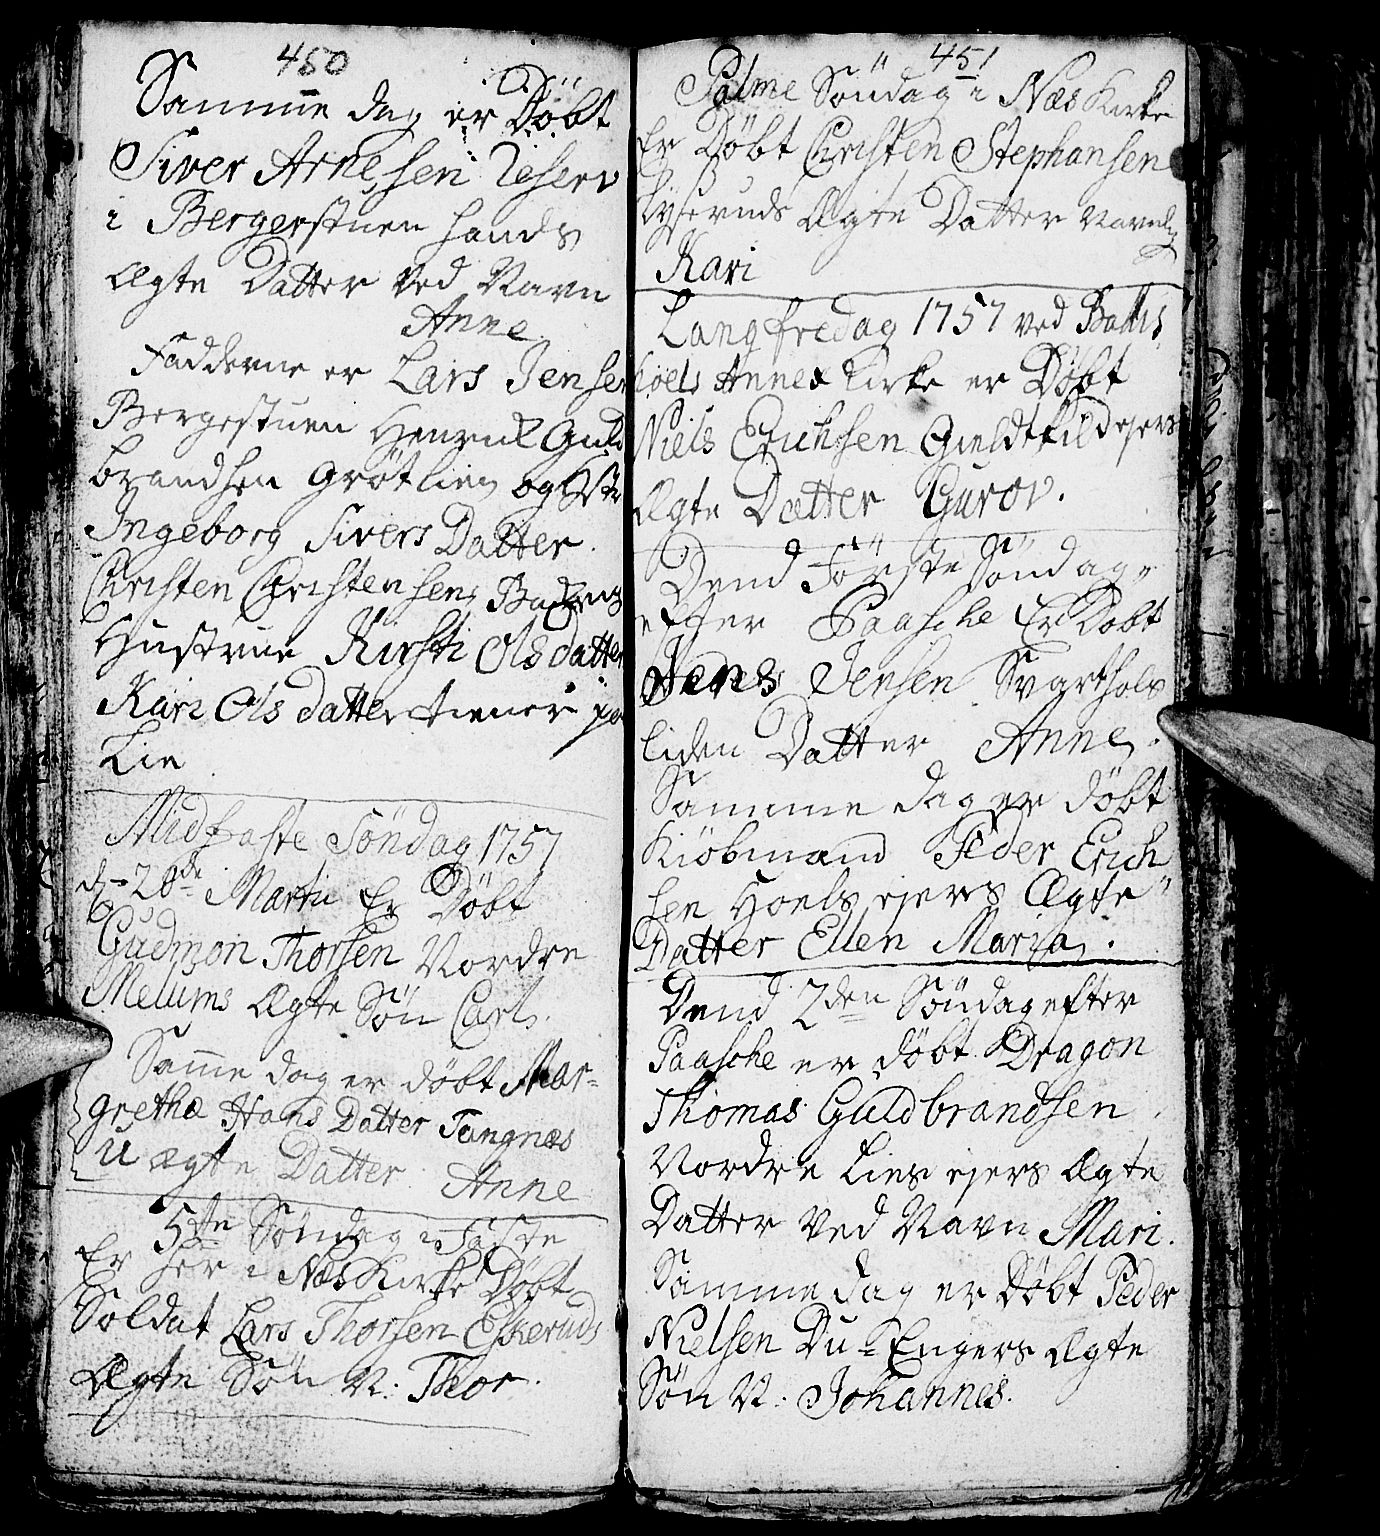 450
Samme dag er Döbt
Siver Arnesen Reserv
i Bergerstuen hands
Ægte Datter ved Navn
Anne
Fadderne er Lars Jensen
Bergestuen Henrick Guld
brandsen Grötlien og
Ingeborg Sivers Datter.
Christen Christensens
Hustrue Kirsti Olsdatter
Kari Olsdatter tiener paa
Lie
Midfaste Söndag 1757
d. 20de Martii Er Döbt
Gudmon Thorsen Nordre
Melums Ægte Sön Carl.
Samme dag er döbt Mar-
grethe Hans Datter Tangnæs
Uægte Datter Anne
5te Söndag i Faste
Er her i Næs Kirke Döbt
Soldat Lars Thorsen Eskeruds
Ægte Sön N: Thor.
451
Palme Söndag i Næs Kirke
Er Döbt Christen Stephansen
Lyseruds Ægte Datter navnlig
Kari
Langfredag 1757 ved Batts
hoels Annex Kirke er Döbt
Niels Erichsen Gieldtkildejers
Ægte Datter Gurov.
Dend Förste Söndag
efter Paasche Er Döbt
Jens Jensen Svarthols
liden Datter Anne.
Samme dag er döbt
Kiöbmand Peder Erich
sen Hoels ejers Ægte
Datter Ellen Maria.
Dend 2den Söndag efter
Paasche er döbt Dragon
Thomas Guldbrandsen
Nordre Lies ejers Ægte
Datter ved Navn Mari.
Samme dag er Döbt Peder
Nielsen Du-Engers Ægte
Sön N: Johannes.